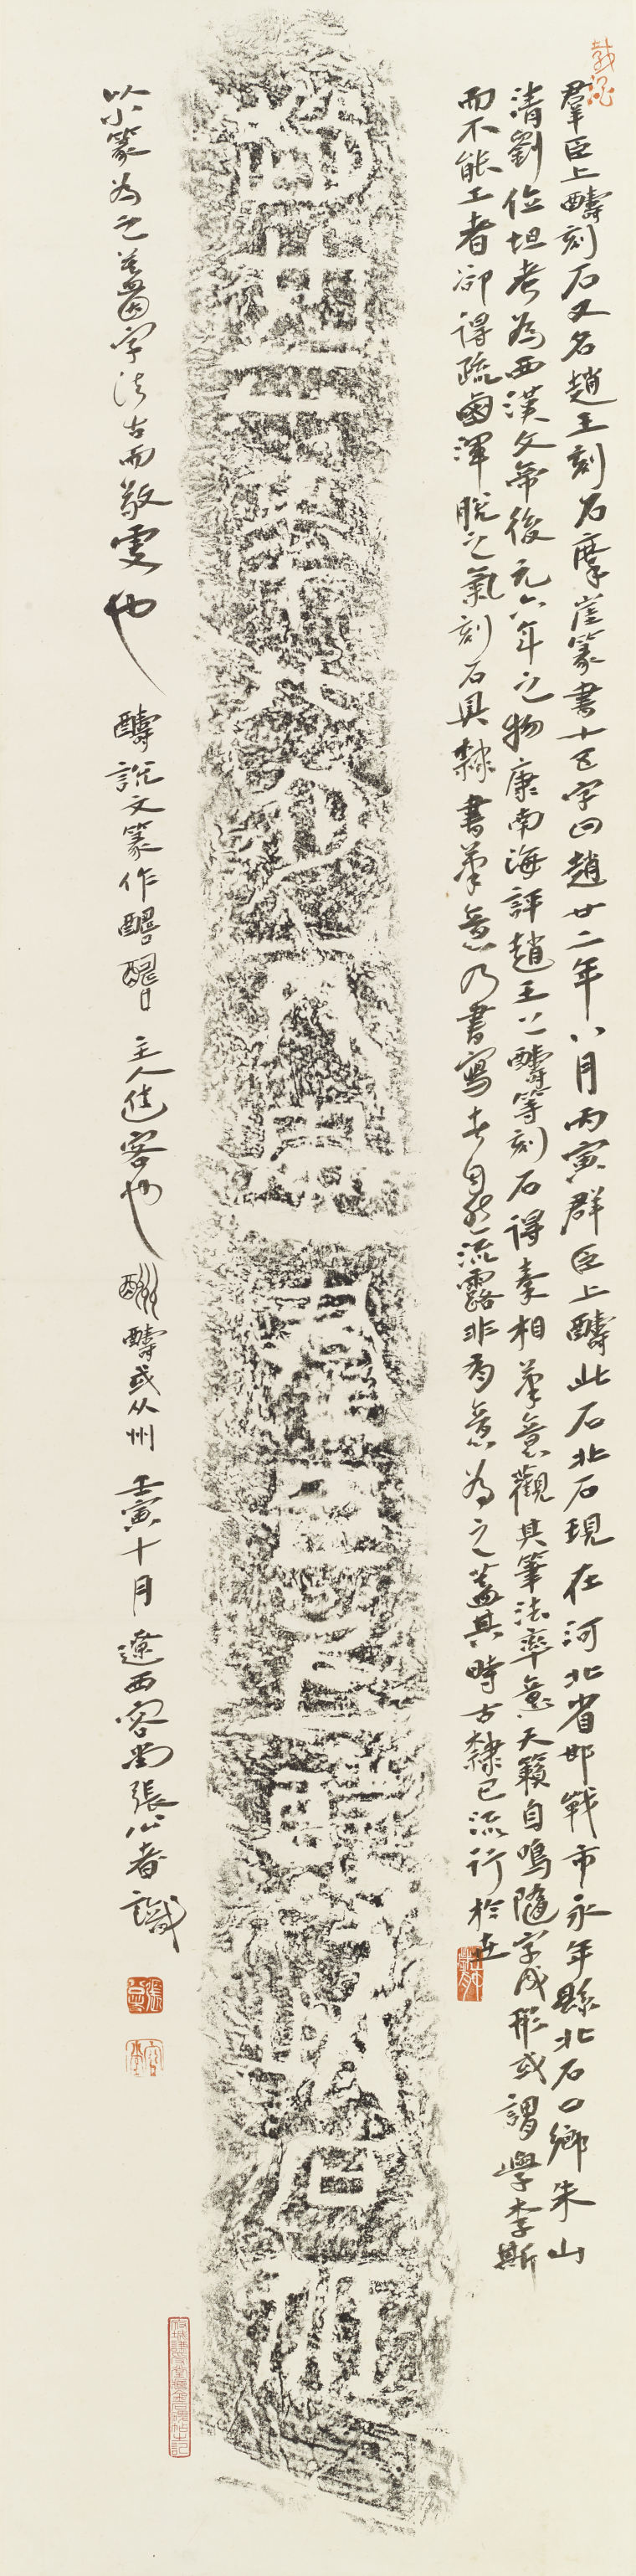 群臣上醻刻石又名趙王刻石摩崖篆書十五字曰趙廿二年八月丙寅群臣上醻此石北石現在河北省邯戰市永年縣北石口鄉朱山
清劉位坦考為西漢文帝後元六年之物康南海評趙王上醻等刻石得秦相筆意觀其筆法率意天籟自鳴隨字成形或謂學李斯
而不能工者卻得疏鹵渾脫之氣刻石具隸書筆意乃書寫者自然流露非有意為之蓋其時古隸已流行於世
趙廿二年八月丙寅群臣上醻此石北
以小篆為之蓋因字法古而敬雯也
醻說文篆作醻醻曰主人進客也酬醻或从州壬寅十月遼西客尚張公者識